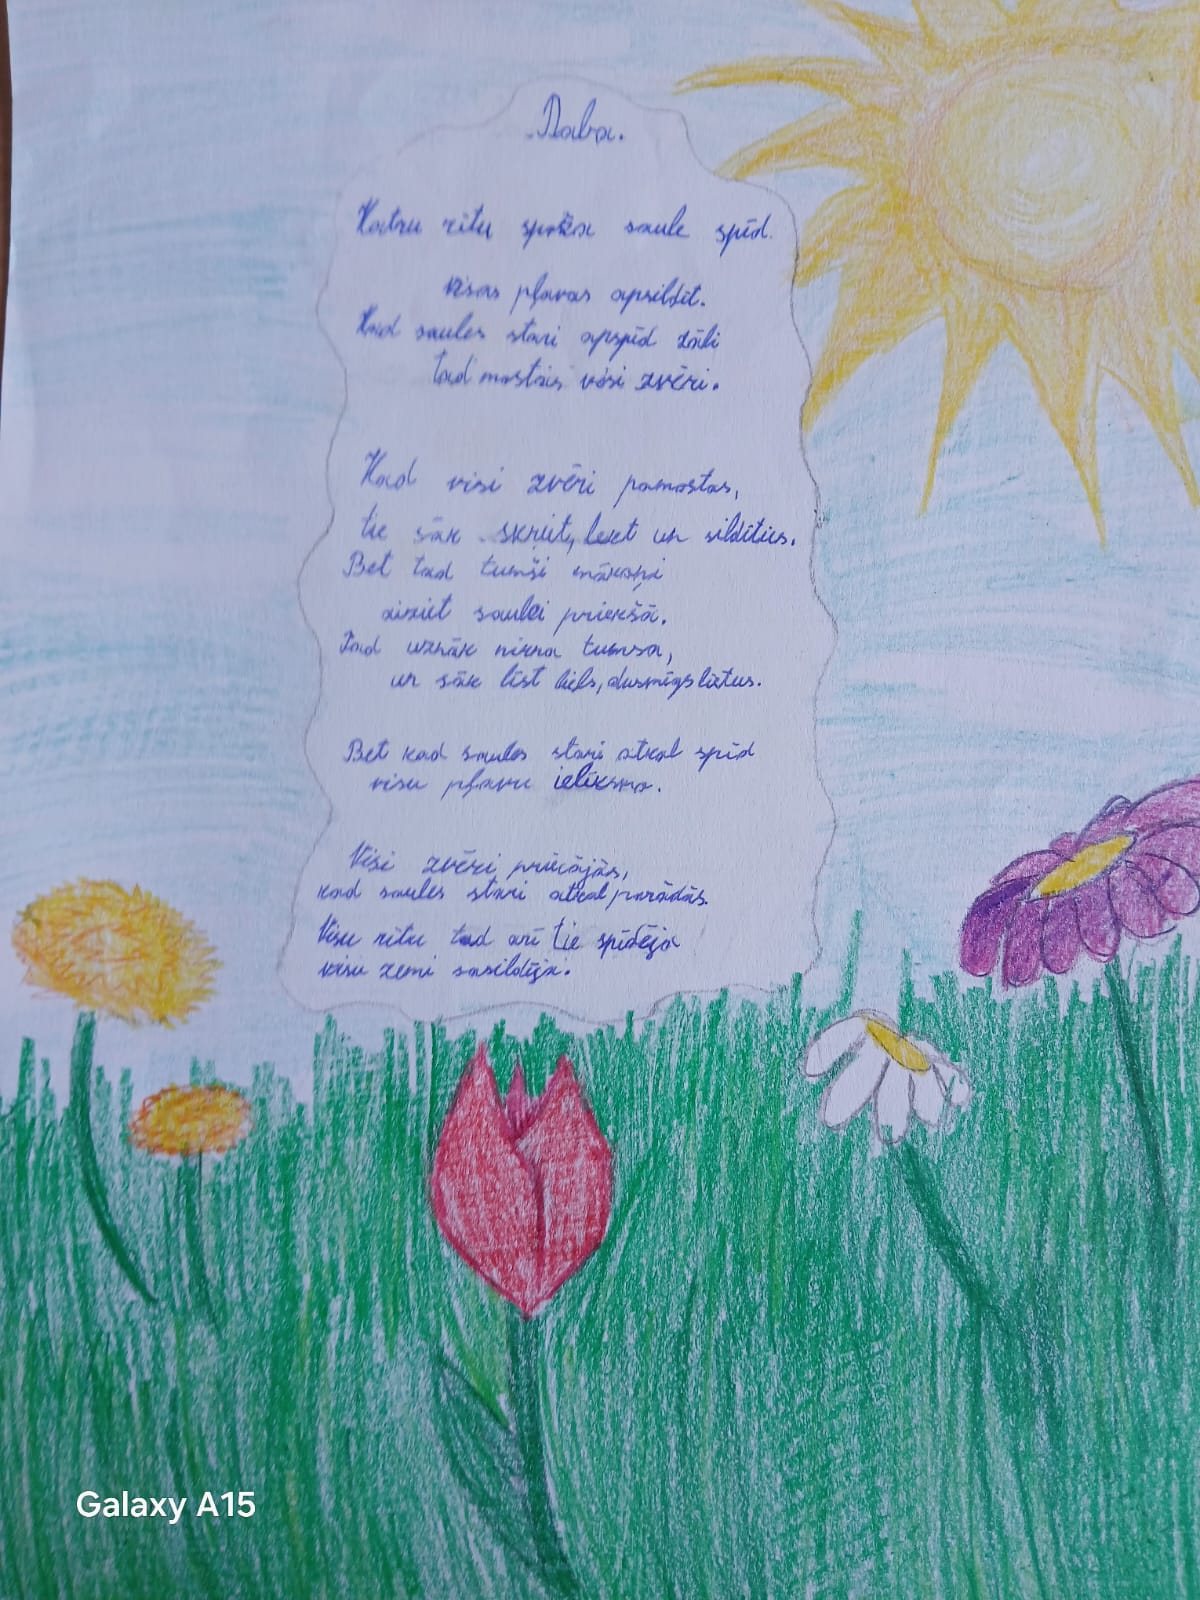 Daba.
Katru rītu spoža saule spīd.
visas pļavas apsildīt.
Kad saules stari apspīd zāli
tad mostās visi zvēri.
Kad visi zvēri pamostas,
tie sāk skriet, lēkt un sildīties.
Bet tad tumši mākoņi
aiziet saulei priekšā.
Tad uznāk nikna tumsa,
un sāk līst liels, dusmīgs lietus.
Bet kad saules stari atkal spīd
visu pļavu ielīksmo.
Visi zvēri priecājās,
kad saules stari atkal parādās.
Visu rītu tad arī tie spīdēja
visu zemi sasildīja.
Galaxy A15